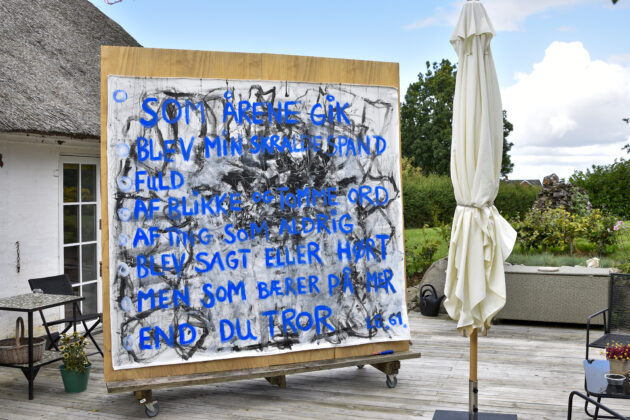 SOM ÅRENE GIK
BLEV MIN SKRALDESPAND
FULD
AF BLIKKE OG TOMME ORD
AF TING SOM ALDRIG
BLEV SAGT ELLER HØRT
MEN SOM BÆRER PÅ MER
END DU TROR